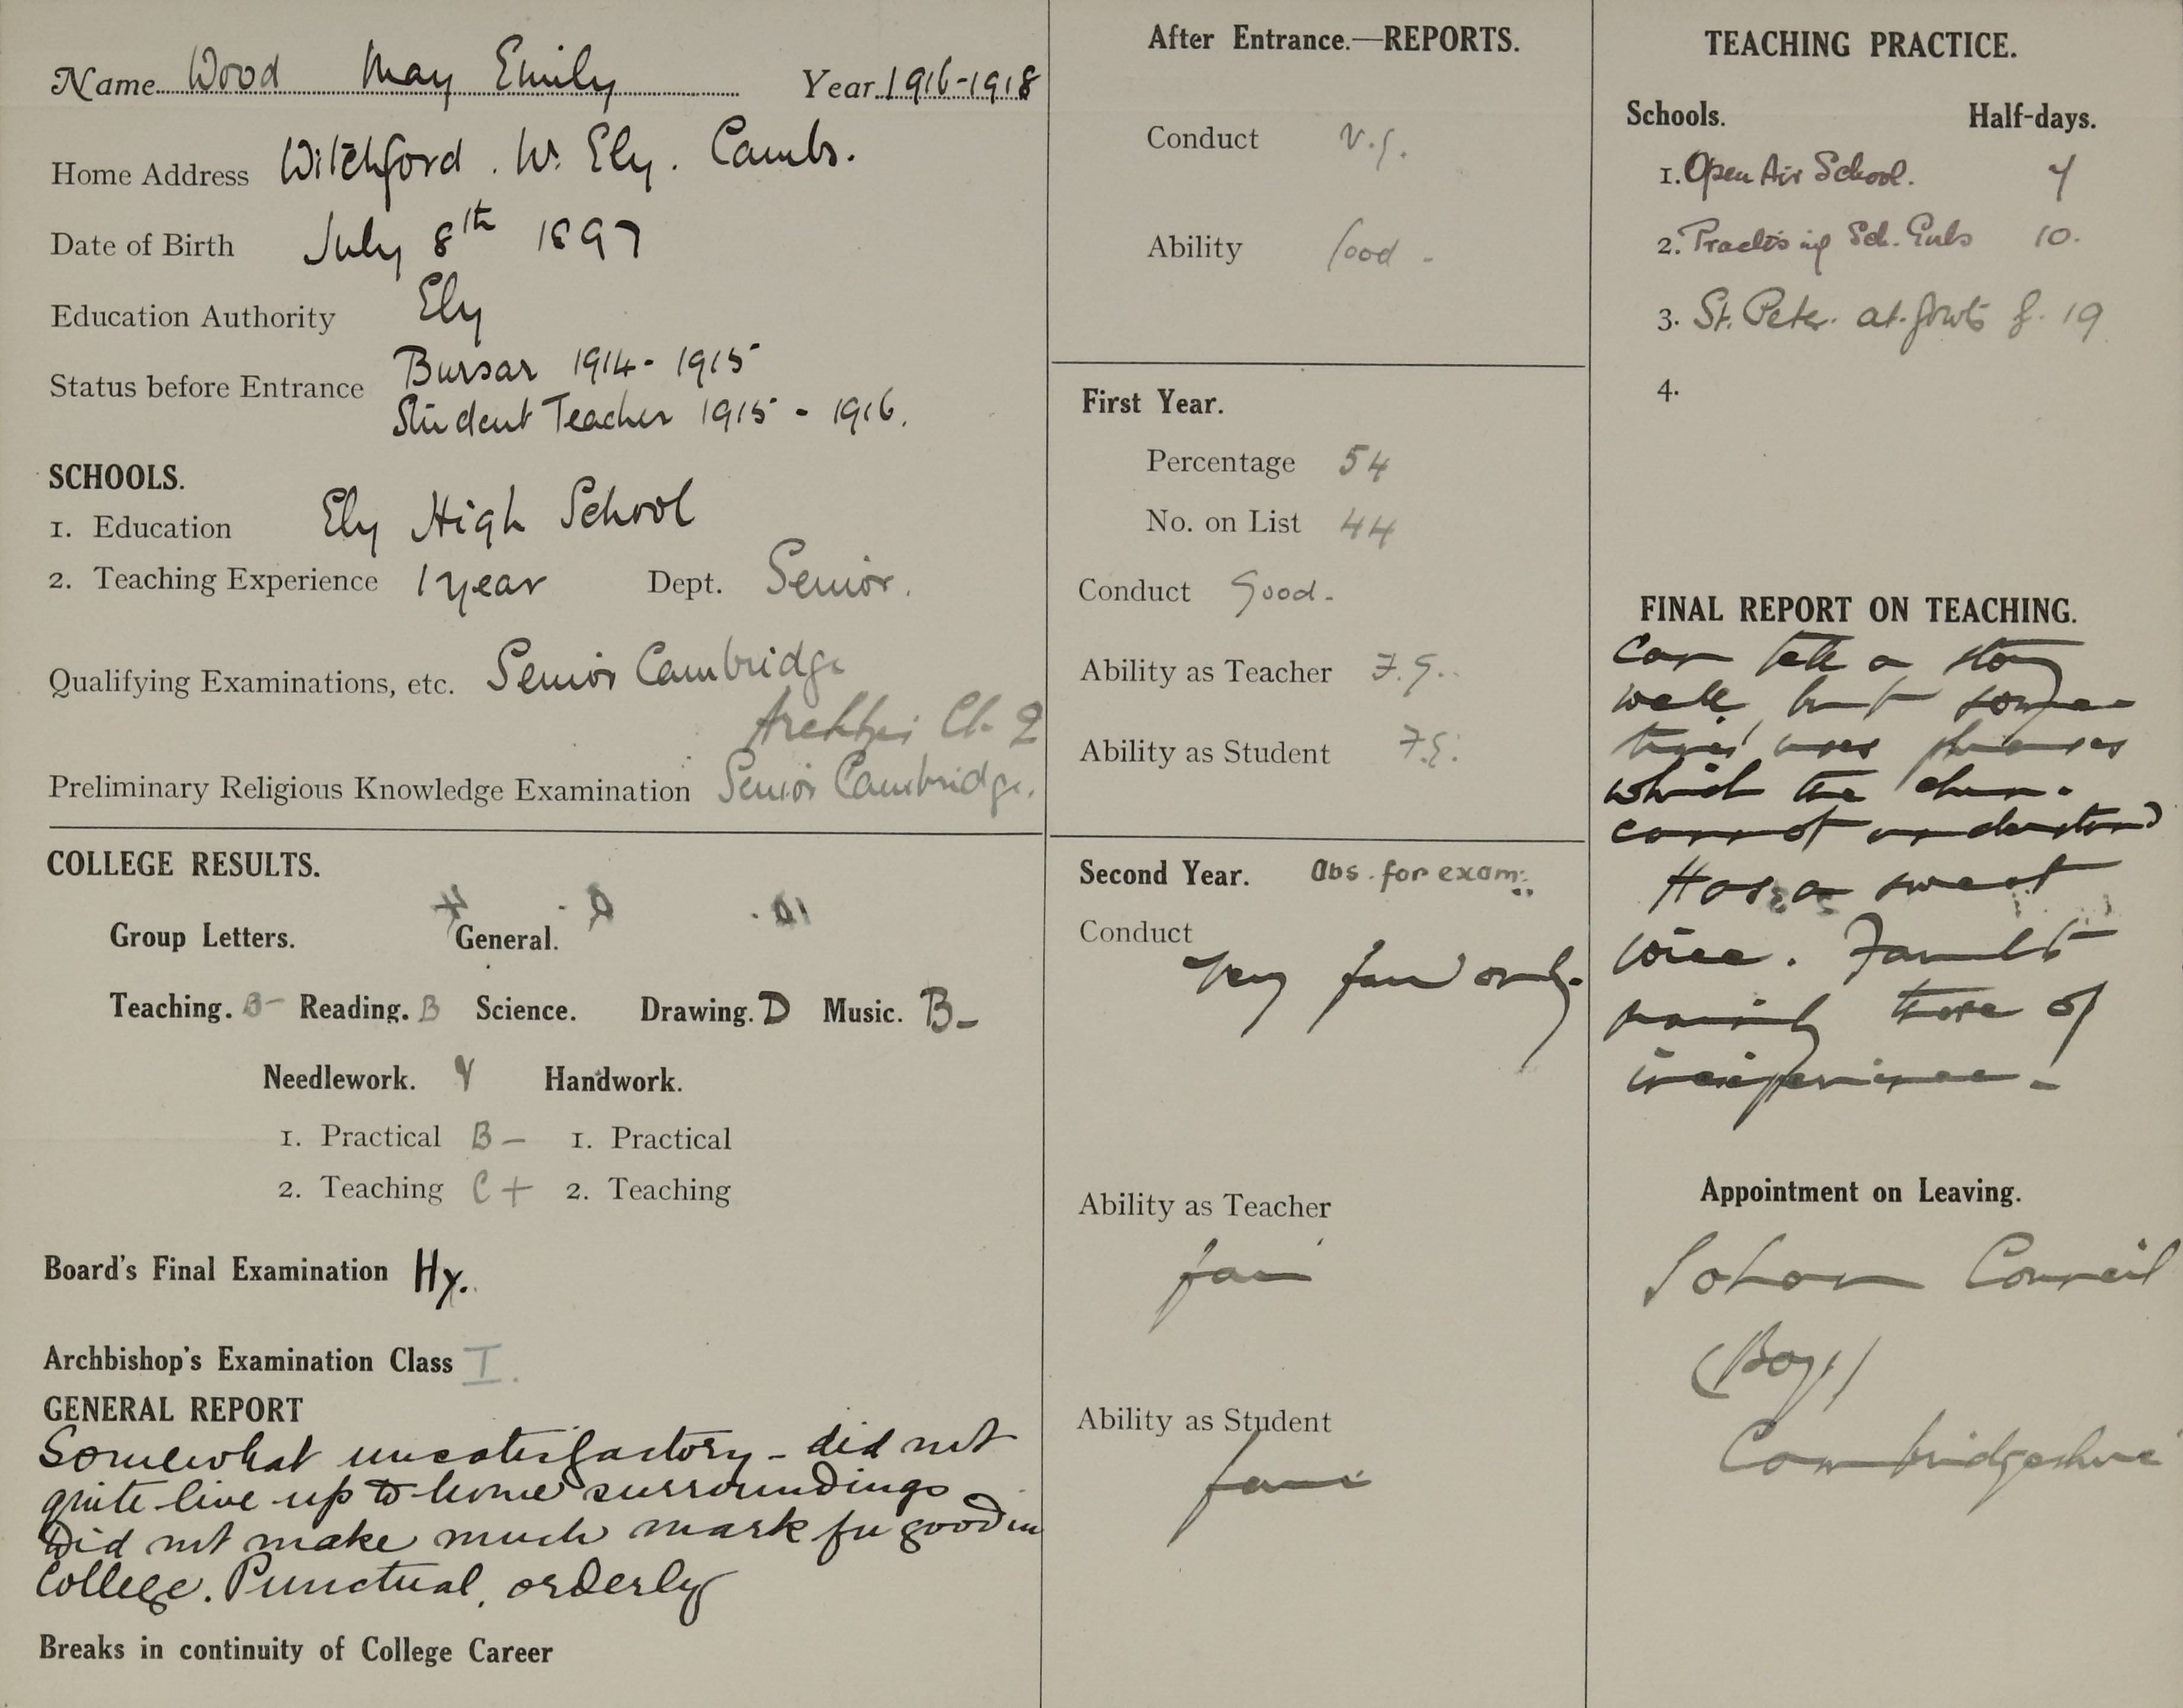 Name Wood May Emily Year 1916-1918
Home Address Witchford. Nr. Ely. Cambs.
Date of Birth July 8th 1897
Education Authority Ely
Status before Entrance Bursar 1914-1915
Student Teacher 1915-1916.
SCHOOLS.
1. Education Ely High School
2. Teaching Experience 1 year Dept. Senior.
Qualifying Examinations, etc. Senior Cambridge
Cl. 2
Preliminary Religious Knowledge Examination Senior Cambridge.
COLLEGE RESULTS.
Group Letters. General.
Teaching. B- Reading. B Science. Drawing. D Music. B-
Needlework. Handwork.
1. Practical B- 1. Practical
2. Teaching C+ 2. Teaching
Board's Final Examination Hy.
Archbishop's Examination Class I.
GENERAL REPORT
Somewhat unsatisfactory - did not
quite live up to home surroundings
Did not make much mark for good in
College. Punctual, orderly
Breaks in continuity of College Career
After Entrance.—REPORTS.
Conduct v.g.
Ability Good -
First Year.
Percentage 54
No. on List 44
Conduct Good -
Ability as Teacher F.G.
Ability as Student F.G.
Second Year. Abs. for exam:
Conduct
Very fair only.
Ability as Teacher
fair
Ability as Student
fair
TEACHING PRACTICE.
Schools. Half-days.
1. Open Air School.
2. Practising Sch. Girls 10.
3. St. Peter. at. Gowts G. 19
4.
FINAL REPORT ON TEACHING.
Can tell a story
well but some
times uses phrases
which the chn.
cannot understand
Has a sweet
voice. Faults
mainly those of
inexperience -
Appointment on Leaving.
Soham Council
(Boys)
Cambridgeshire